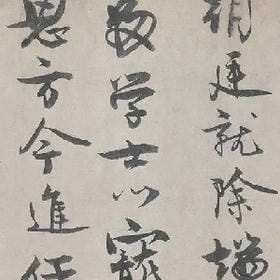 朝廷就除端
殿学士以寵
恩方今進任